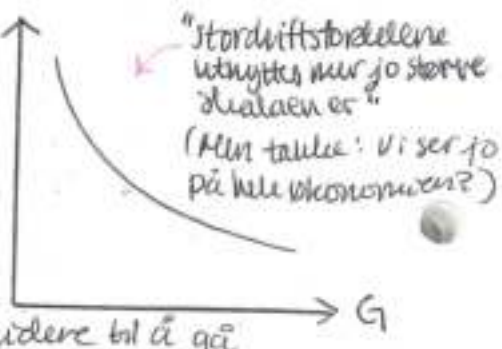 "Stordriftsfordelene
utnyttes mer jo større
skalaen er"
(Min tanke: Vi ser jo
på hele økonomien?)
G
videre til å gå